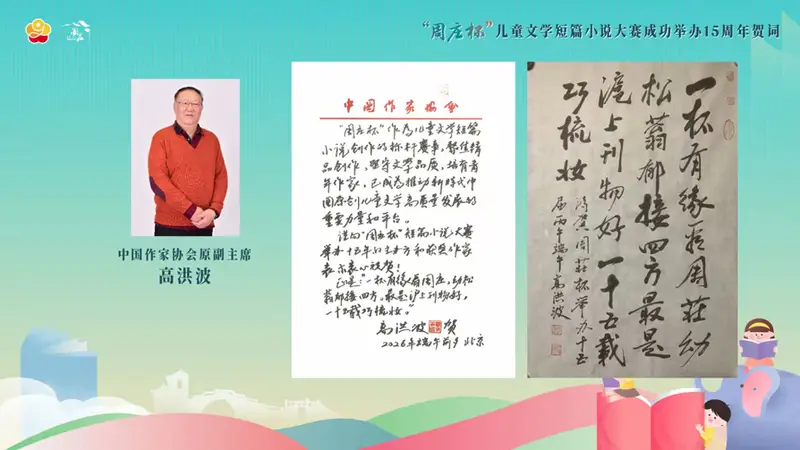 “周庄杯”儿童文学短篇小说大赛成功举办15周年贺词
中国作家协会原副主席
高洪波
中国作家协会
“周庄杯”作为儿童文学短篇
小说创作的标杆赛事，聚焦精
品创作，坚守文学品质，培育青
年作家，已成为推动新时代中
国原创儿童文学高质量发展的
重要力量和平台。
谨向“周庄杯”短篇小说大赛
举办十五年的主办方和获奖作家
表示衷心祝贺！
正是：“一杯有缘看周庄，幼松
蓊郁接四方。最是沪上刊物好，
一十五载巧梳妆。”
高洪波 贺
2026年端午前夕 北京
一杯有缘看周莊幼
松蓊郁接四方最是
滬上刊物好一十五载
巧梳妆
周莊杯举办十五
届丙午端午高洪波